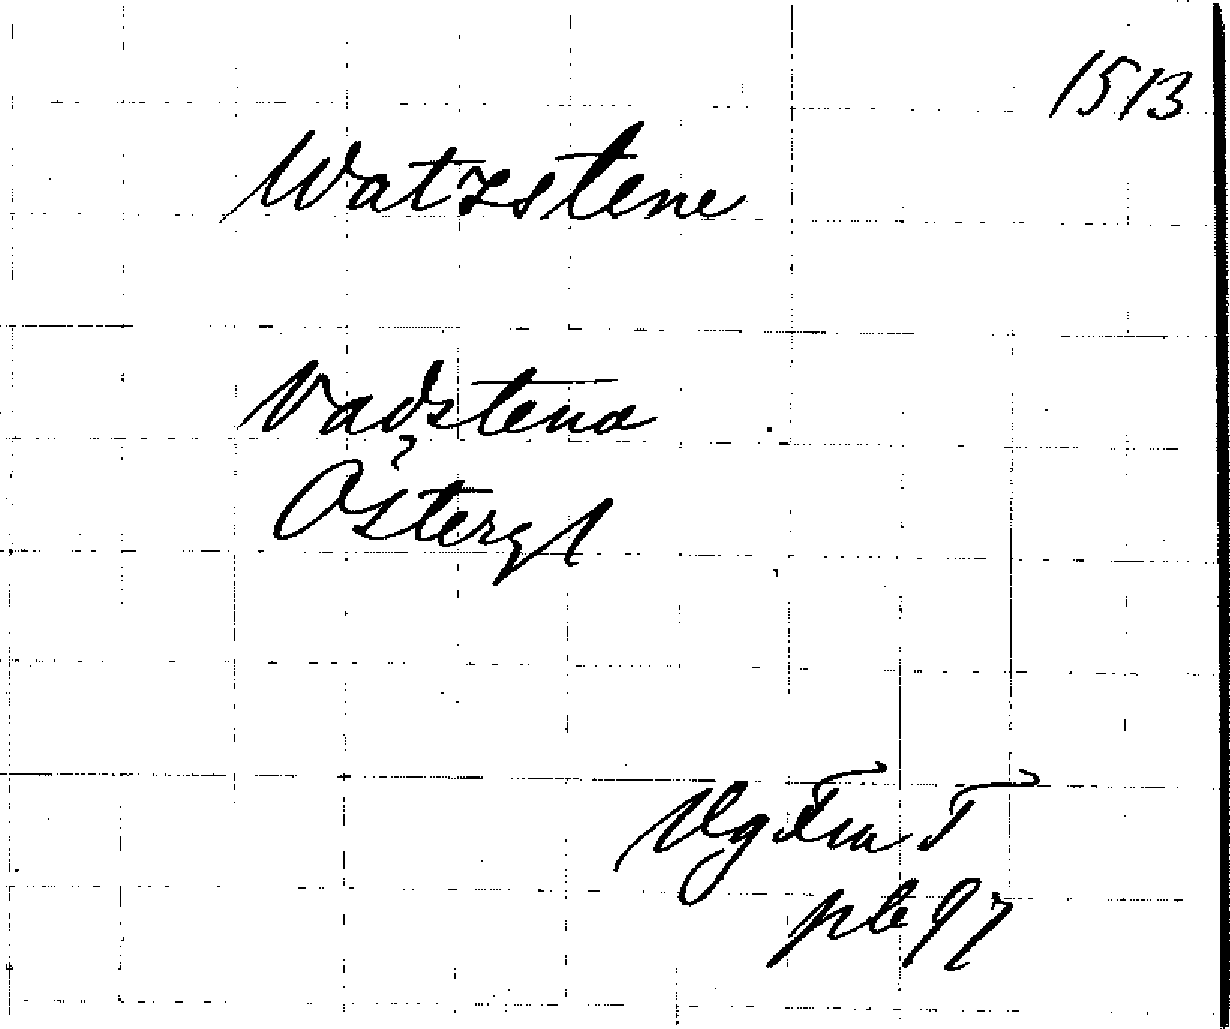 1513
Watzstene
Vadstena
Östergl
Vg Fra T
ple 97